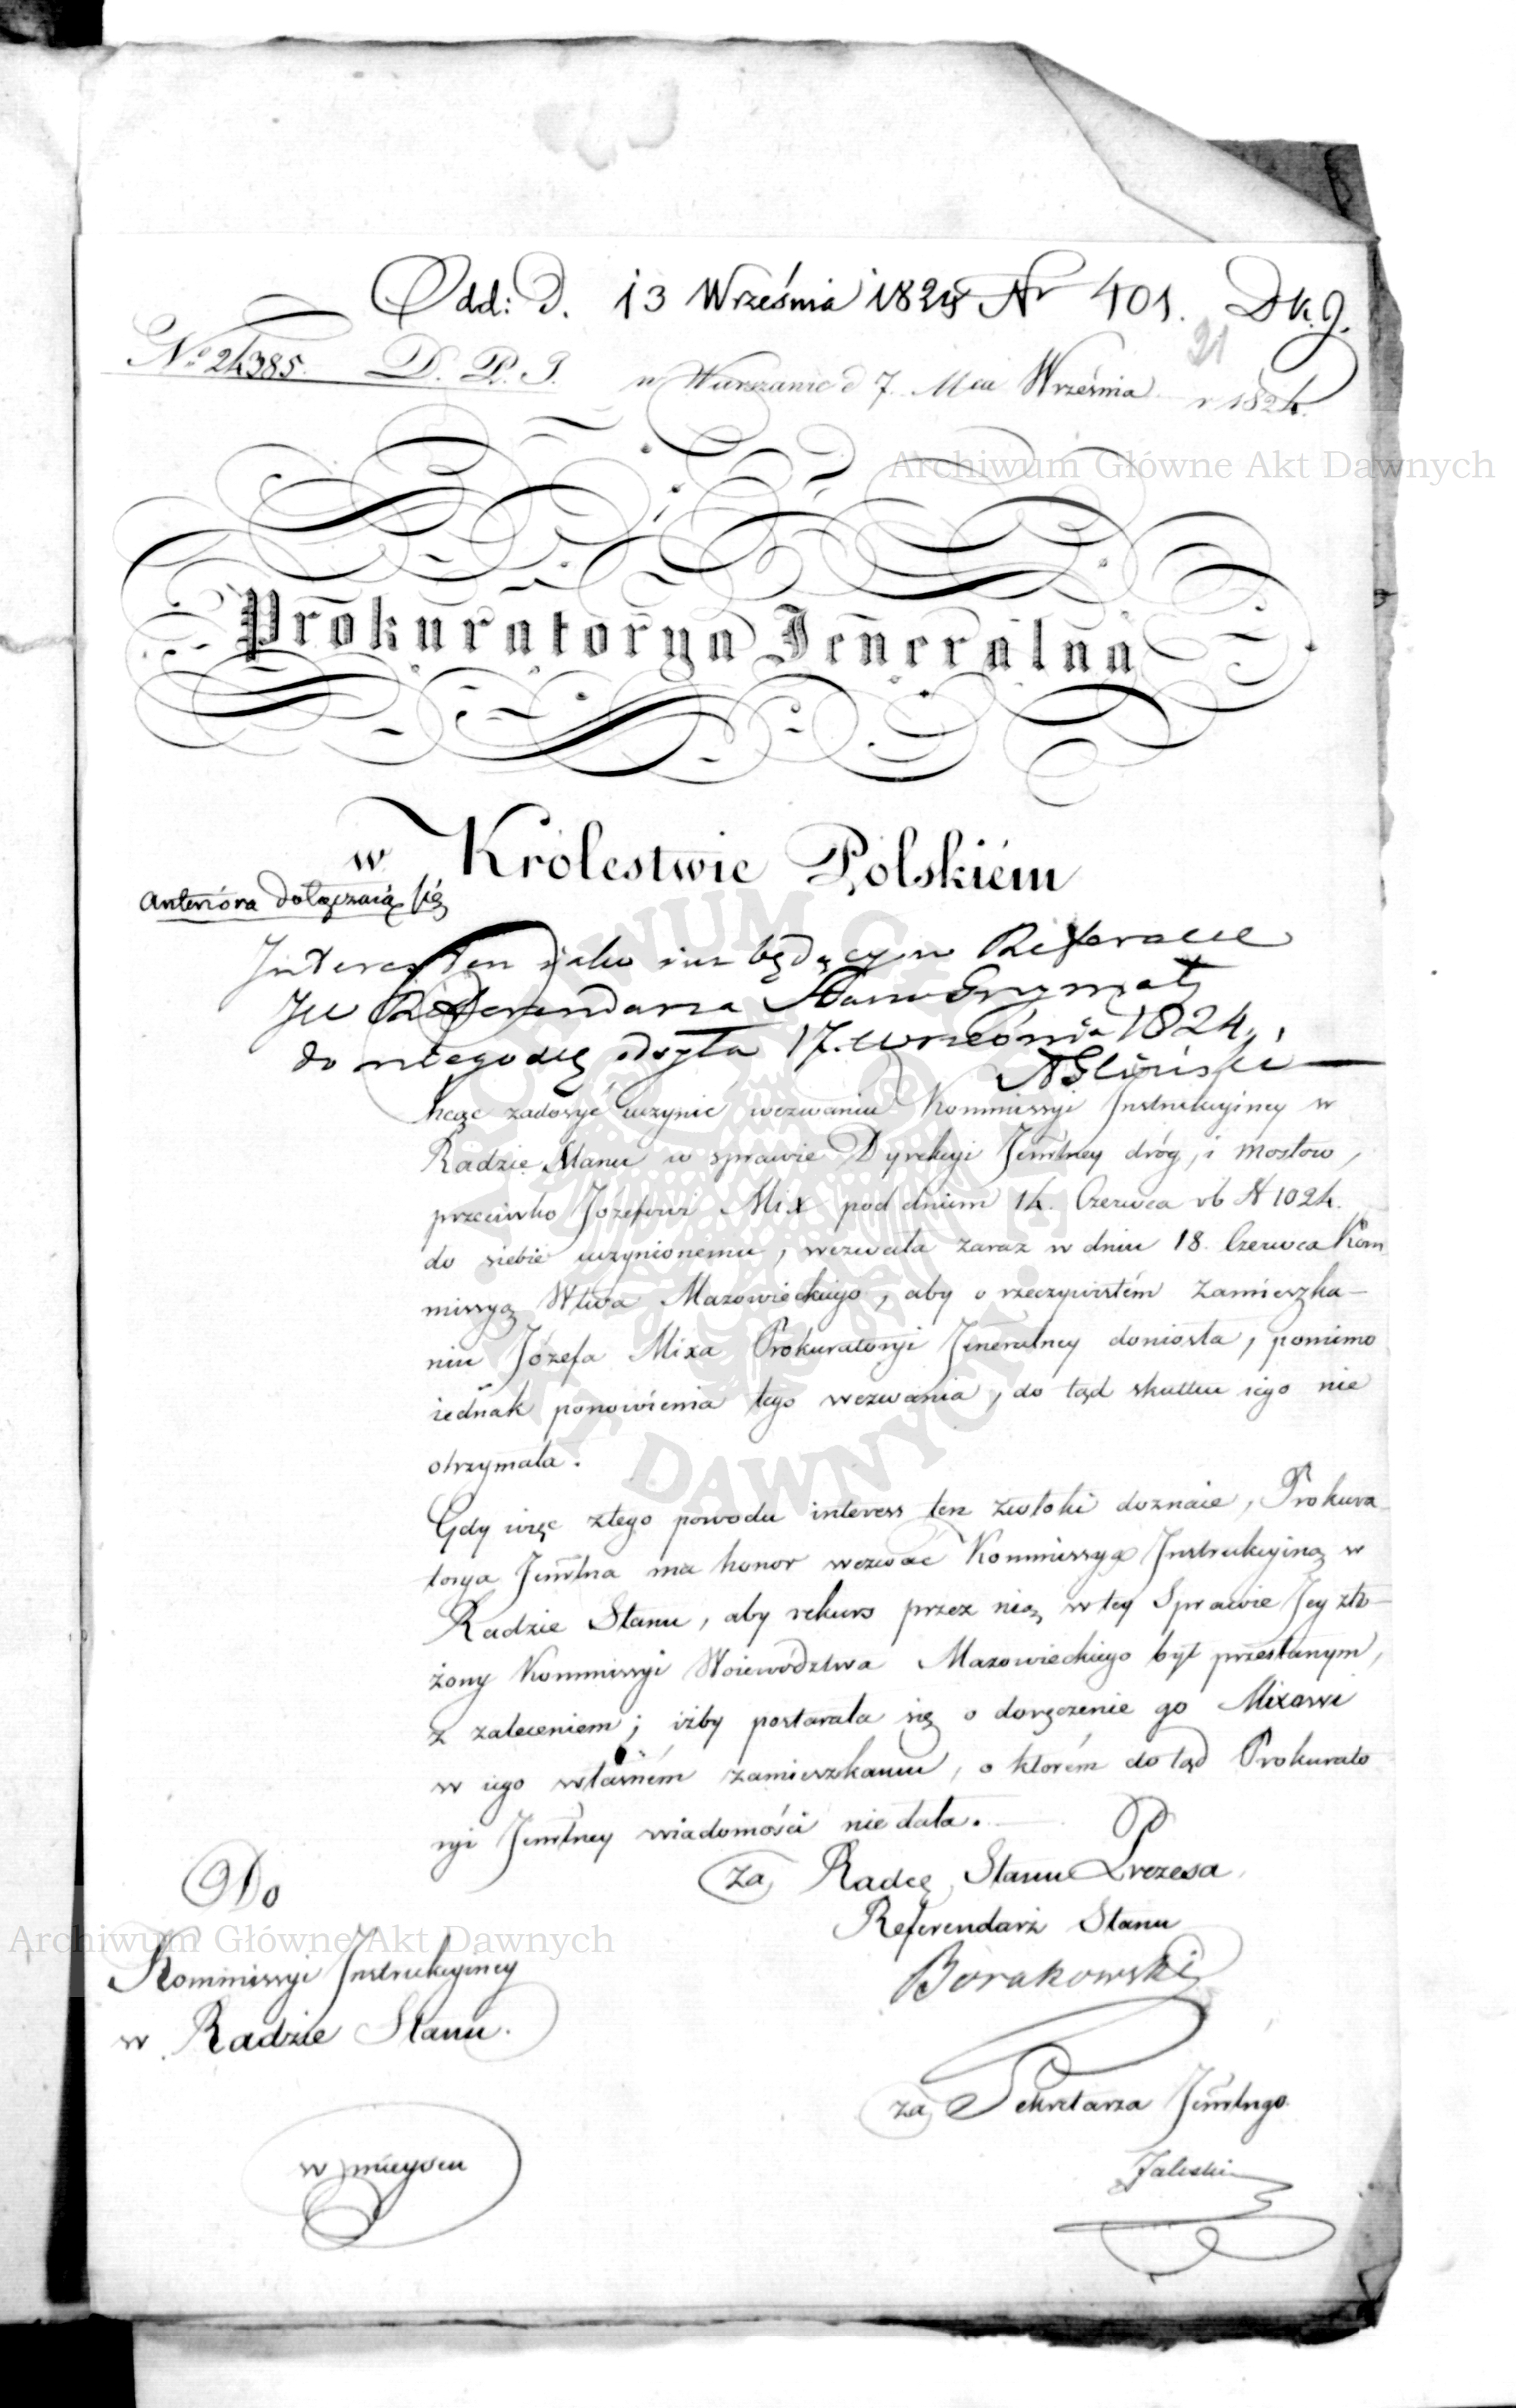 Odd: D. 13 Września 1824 Nr 401. D k. J.
21
No 24385. D. P. J. w Warszawie d 7. Mca Września r 1824.
Archiwum Główne Akt Dawnych
Prokuratorya Jeneralna
w Królestwie Polskiém
anteriora dołączaią się
Interes ten jako iuz będący w Referacie
JW Referendarza Stanu Grzymały
do niegoż się odsyła 17. września 1824.
Chcąc zadosyć uczynić wezwaniu Kommissyi Instrukcyiney w
Radzie Stanu w sprawie Dyrekcyi Jenrlney dróg, i mostow,
przeciwko Józefowi Mix pod dniem 14. Czerwca rb N 1024.
do siebie uczynionemu, wezwała zaraz w dniu 18. Czerwca Kom
missyą Wtwa Mazowieckiego, aby o rzeczywistém zamieszka-
niu Józefa Mixa Prokuratoryi Jeneralney doniosła, pomimo
iednak ponowienia tego wezwania, do tąd skutku iego nie
otrzymała.
Gdy więc ztego powodu interess ten zwłoki doznaie, Prokura
torya Jenrlna ma honor wezwać Kommissyą Instrukcyiną w
Radzie Stanu, aby rekurs przez nią w tey Sprawie Jey zło-
żony Kommissyi Woiewództwa Mazowieckiego był przesłanym,
z zaleceniem; iżby postarała się o doręczenie go Mixowi
w iego własném zamieszkaniu, o ktorém do tąd Prokurato
ryi Jenrlney wiadomości nie dała.
za Radcę Stanu Prezesa
Referendarz Stanu
Borakowski
Do
Kommissyi Instrukcyiney
w Radzie Stanu.
Archiwum Główne Akt Dawnych
za Sekretarza Jenrlngo
Zaleski
w mieyscu
ARCHIWUM GŁÓWNE AKT DAWNYCH